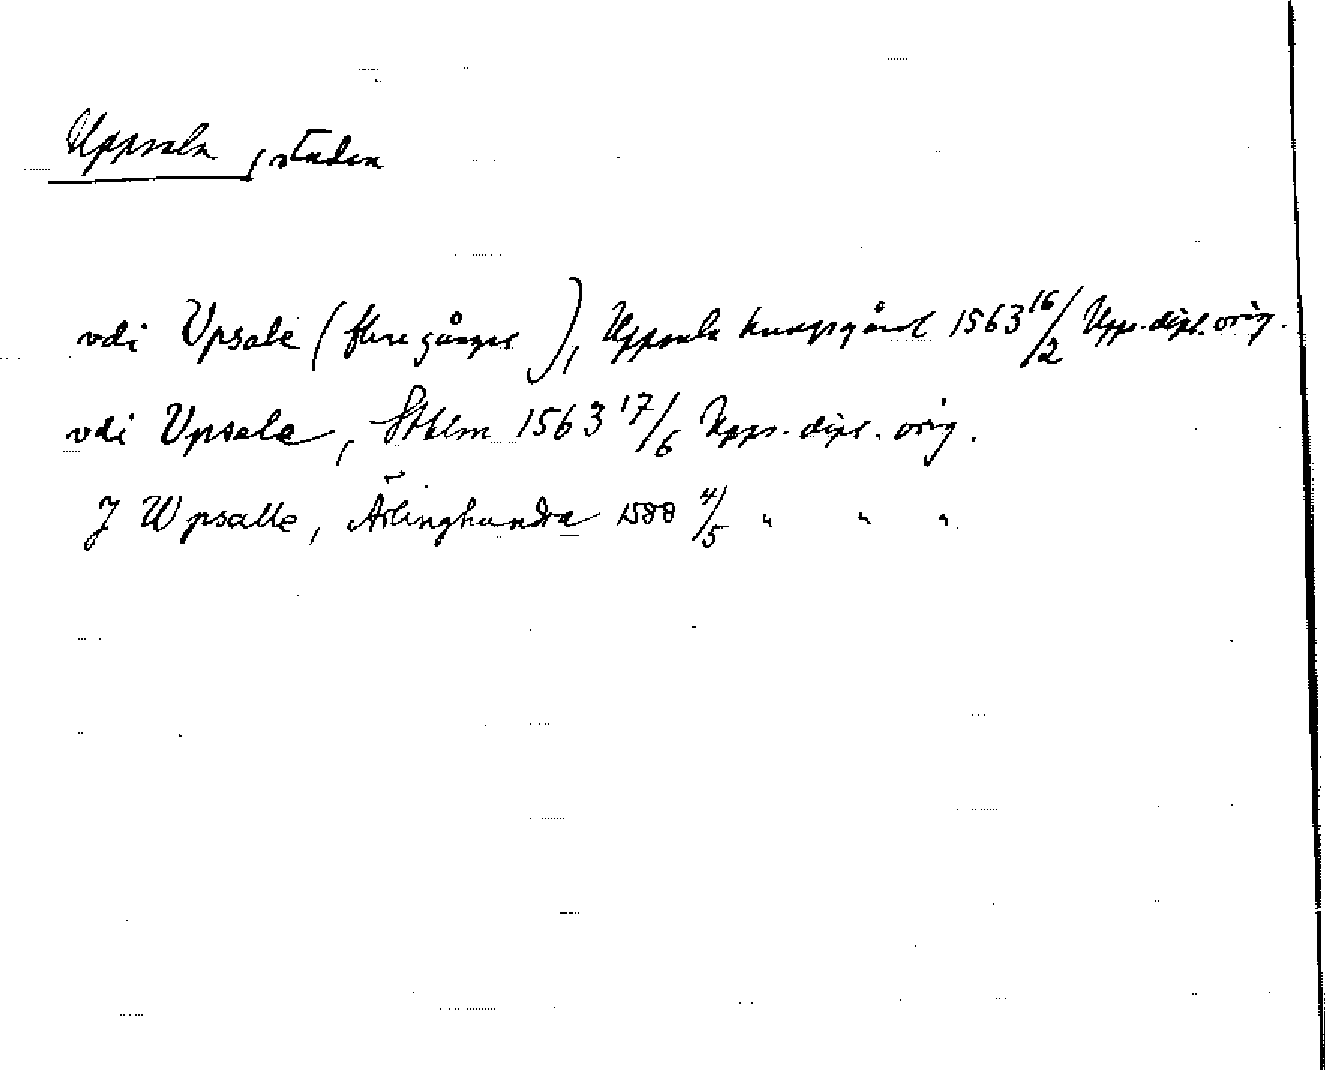 Uppsala, staden
vdi Vpsale (flere gånger), Uppsala kungsgård 1563 16/2 Upps. dipl. orig.
vdi Vpsala, Sthlm 1563 17/6 Upps. dipl. orig.
J Wpsalle, Ärlinghundra 1588 4/5 " " "